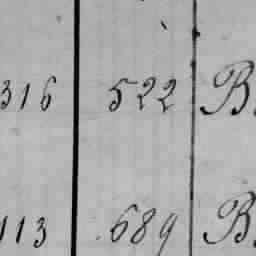 316 522 B.
113 689 B.